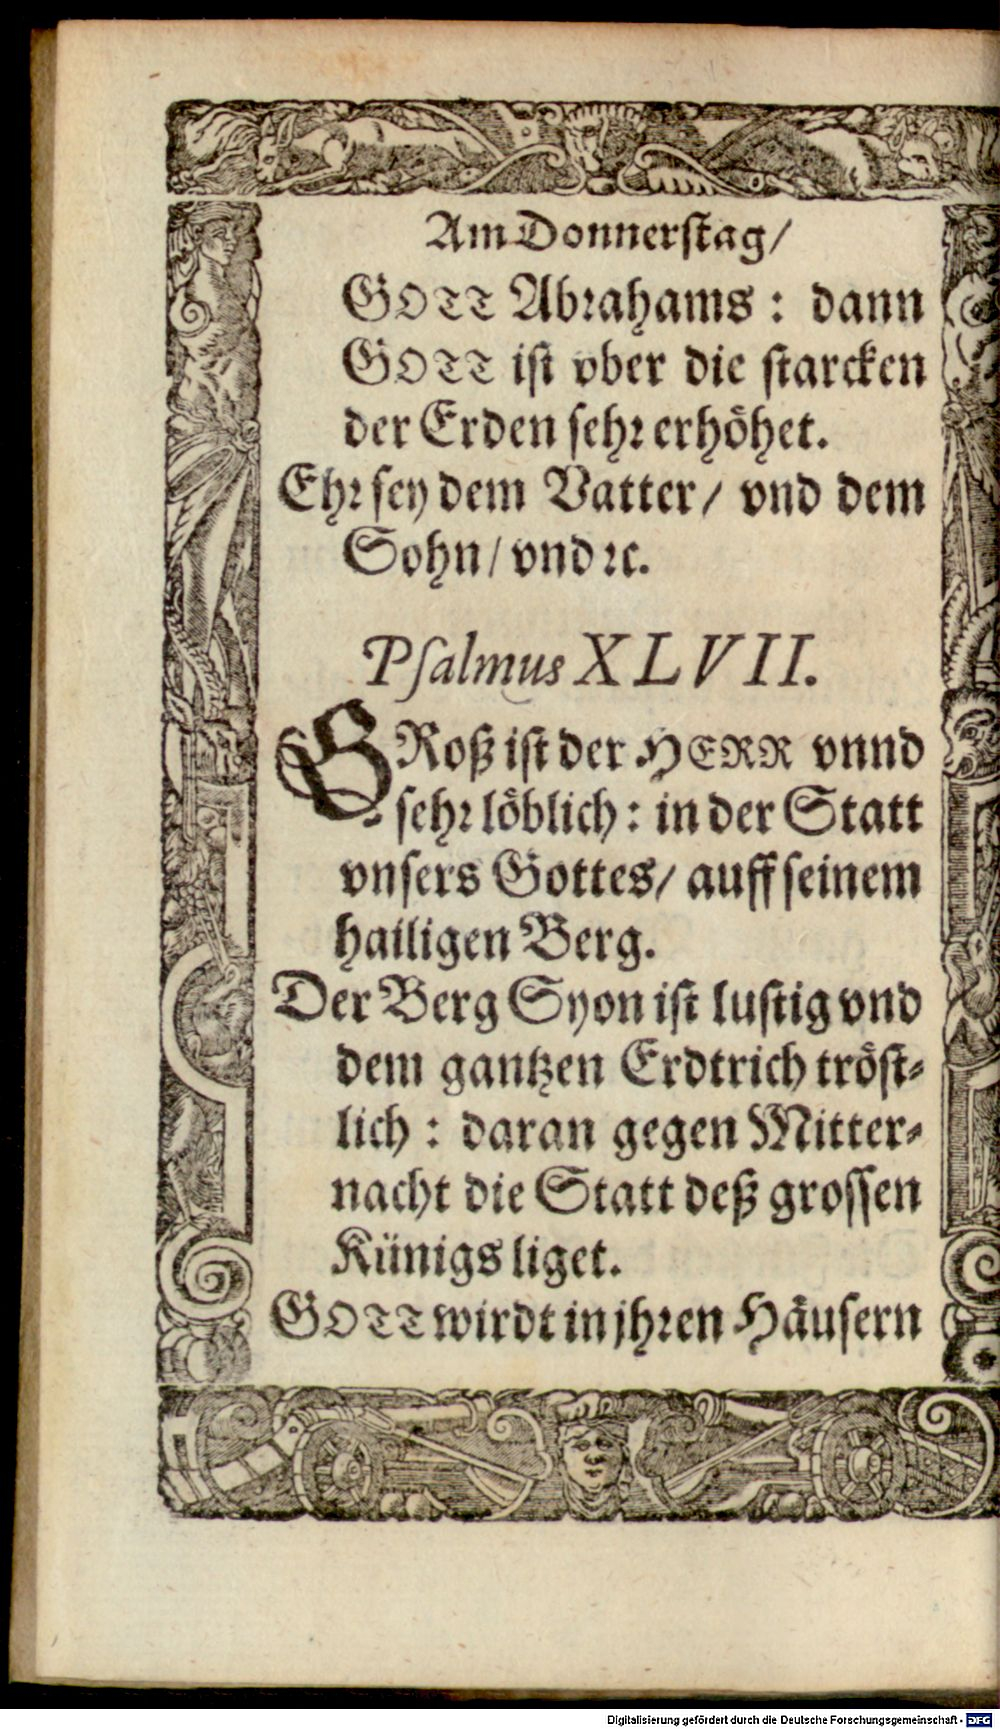 Am Donnerstag/
GOTT Abrahams : dann
GOTT ist vber die starcken
der Erden sehr erhöhet.
Ehr sey dem Vatter/ vnd dem
Sohn/ vnd ꝛc.
Psalmus XLVII.
GRoß ist der HERR vnnd
sehr löblich : in der Statt
vnsers Gottes/ auff seinem
hailigen Berg.
Der Berg Syon ist lustig vnd
dem gantzen Erdtrich tröst-
lich : daran gegen Mitter-
nacht die Statt deß grossen
Künigs liget.
GOTT wirdt in jhren Häusern
Digitalisierung gefördert durch die Deutsche Forschungsgemeinschaft - DFG